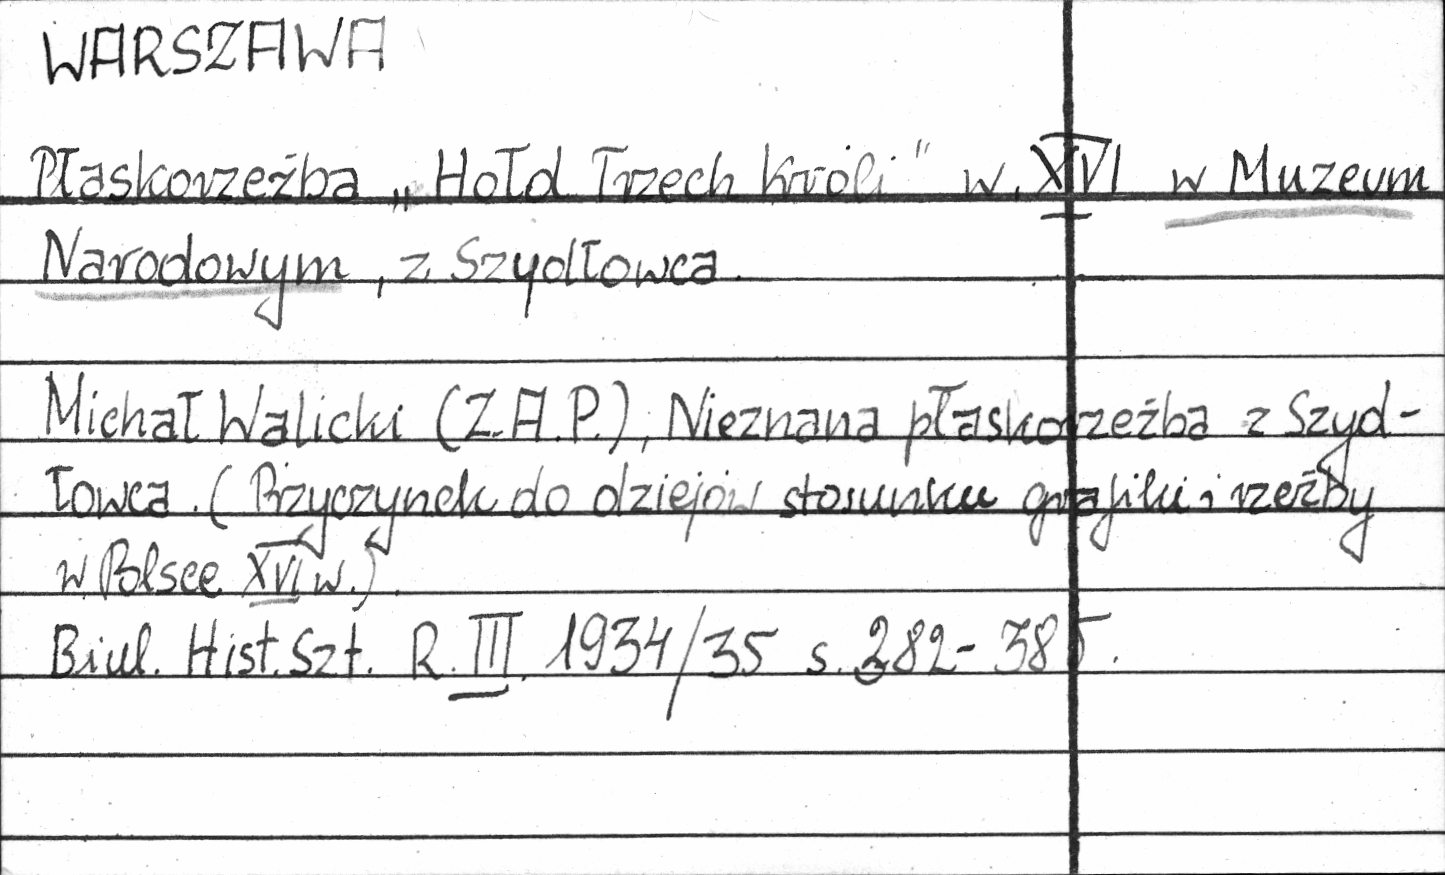 WARSZAWA
Płaskorzeźba „Hołd Trzech Króli" w. XVI w Muzeum
Narodowym, z Szydłowca.
Michał Walicki (Z.A.P.), Nieznana płaskorzeźba z Szyd-
łowca. (Przyczynek do dziejów stosunku grafiki i rzeźby
w Polsce XVI w.).
Biul. Hist. Szt. R. III. 1934/35 s. 282-385.